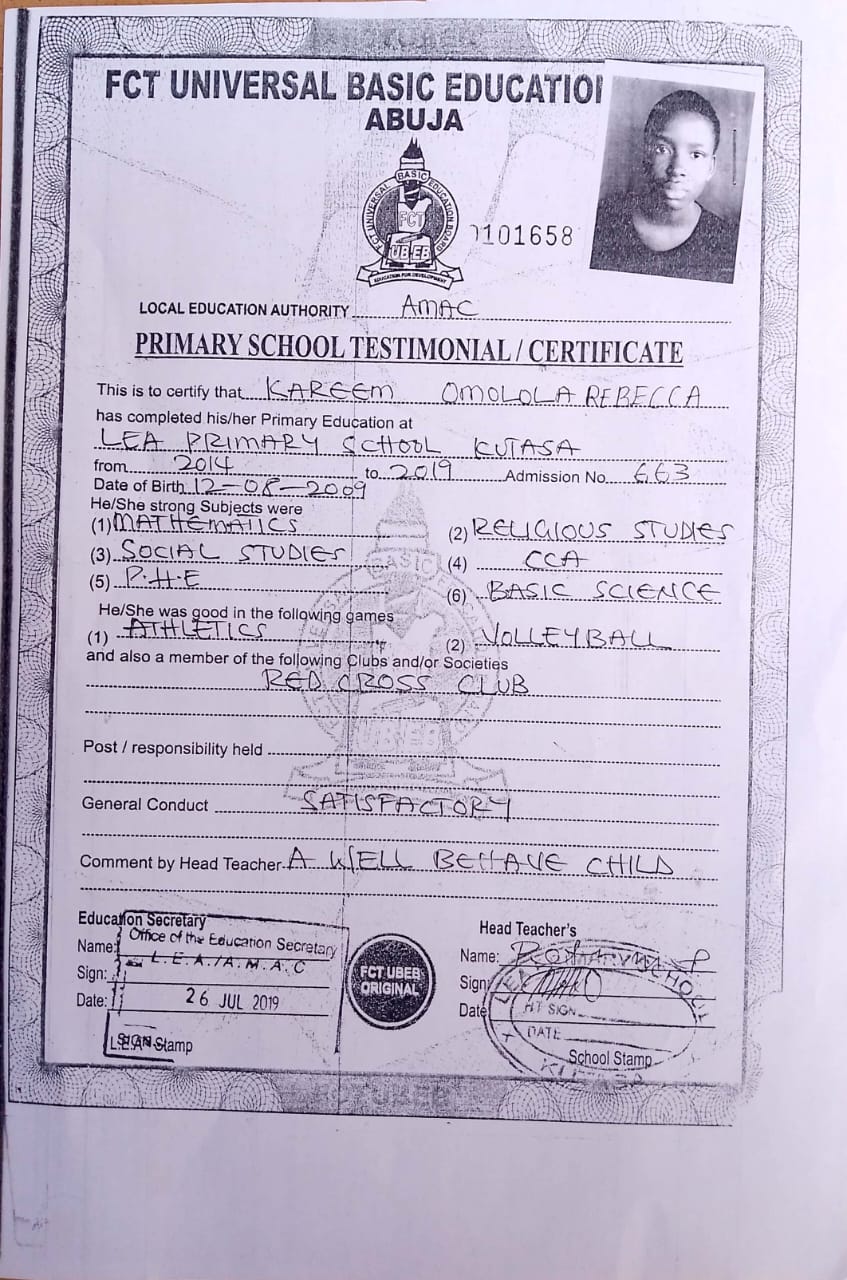 FCT UNIVERSAL BASIC EDUCATIO
ABUJA
FCT UNIVERSAL BASIC EDUCATION BOARD
FCT
UBEB
EDUCATION FOR DEVELOPMENT
101658
LOCAL EDUCATION AUTHORITY AMAC
PRIMARY SCHOOL TESTIMONIAL / CERTIFICATE
This is to certify that KAREEM OMOLOLA REBECCA
has completed his/her Primary Education at
LEA PRIMARY SCHOOL KUTASA
from 2014 to 2019 Admission No. 663
Date of Birth 12-08-2009
He/She strong Subjects were
(1) MATHEMATICS (2) RELIGIOUS STUDIES
(3) SOCIAL STUDIES (4) CCA
(5) P.H.E (6) BASIC SCIENCE
He/She was good in the following games
(1) ATHLETICS (2) VOLLEYBALL
and also a member of the following Clubs and/or Societies
RED CROSS CLUB
Post / responsibility held
General Conduct SATISFACTORY
Comment by Head Teacher A WELL BEHAVE CHILD
Education Secretary Head Teacher's
Office of the Education Secretary
Name: Name:
L.E.A./A.M.A.C
Sign: Sign:
HT SIGN
Date: 26 JUL 2019 Date
DATE
FCT UBEB
ORIGINAL
SIGN
L.E.A Stamp School Stamp